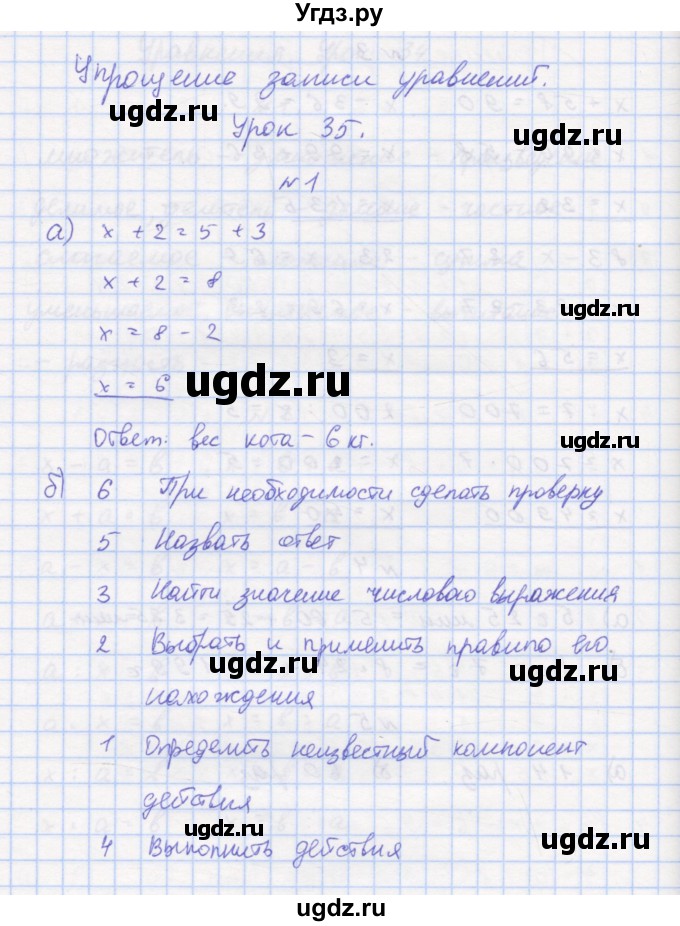 Угдз.ру
Упрощение записи уравнений.
ugdz.ru
ugdz.ru
Урок 35.
№1
а) x + 2 = 5 + 3
x + 2 = 8
ugdz.ru
x = 8 - 2
x = 6
ugdz.ru
ugdz.ru
Ответ: вес кота - 6 кг.
б) 6 При необходимости сделать проверку
5 Назвать ответ
ugdz.ru
3 Найти значение числового выражения
2 Выбрать и применить правило его.
ugdz.ru
ugdz.ru
нахождения
1 Определить неизвестный компонент
действия
ugdz.ru
ugdz.ru
4 Выполнить действия
ugdz.ru